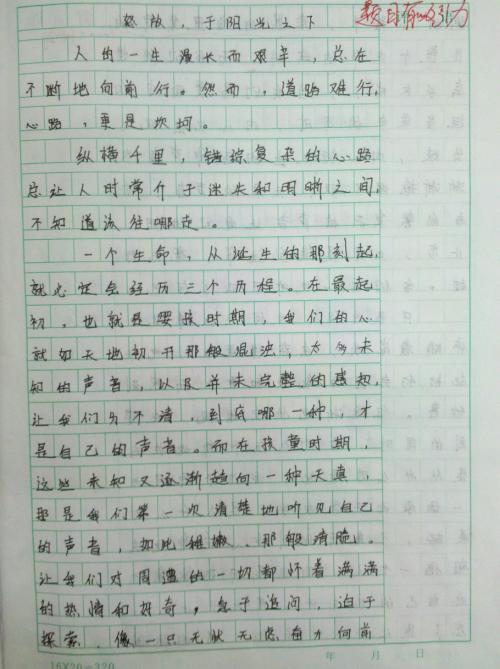 怒放，于阳光之下
题目有吸引力
人的一生漫长而艰辛，总在
不断地向前行。然而，道路难行，
心路，更是坎坷。
纵横千里，错综复杂的心路
总让人时常介于迷失和明晰之间，
不知道该往哪走。
一个生命，从诞生的那刻起，
就必定会经历三个历程。在最起
初，也就是婴孩时期，我们的心
就如天地初开那般混浊，太多未
知的声音，以及并未完整的感知，
让我们分不清，到底哪一种，才
是自己的声音。而在孩童时期，
这些未知又逐渐趋向一种天真，
那是我们第一次清楚地听见自己
的声音，如此稚嫩，那般清脆。
让我们对周遭的一切都怀着满满
的热情和好奇，急于追问，迫于
探索，像一只无忧无虑奋力向前
16X20=320
年 月 日